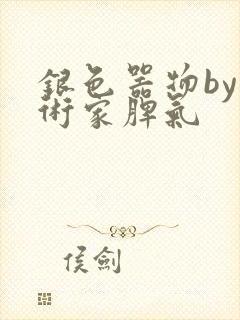 銀色器物by
術家脾氣
侯劍